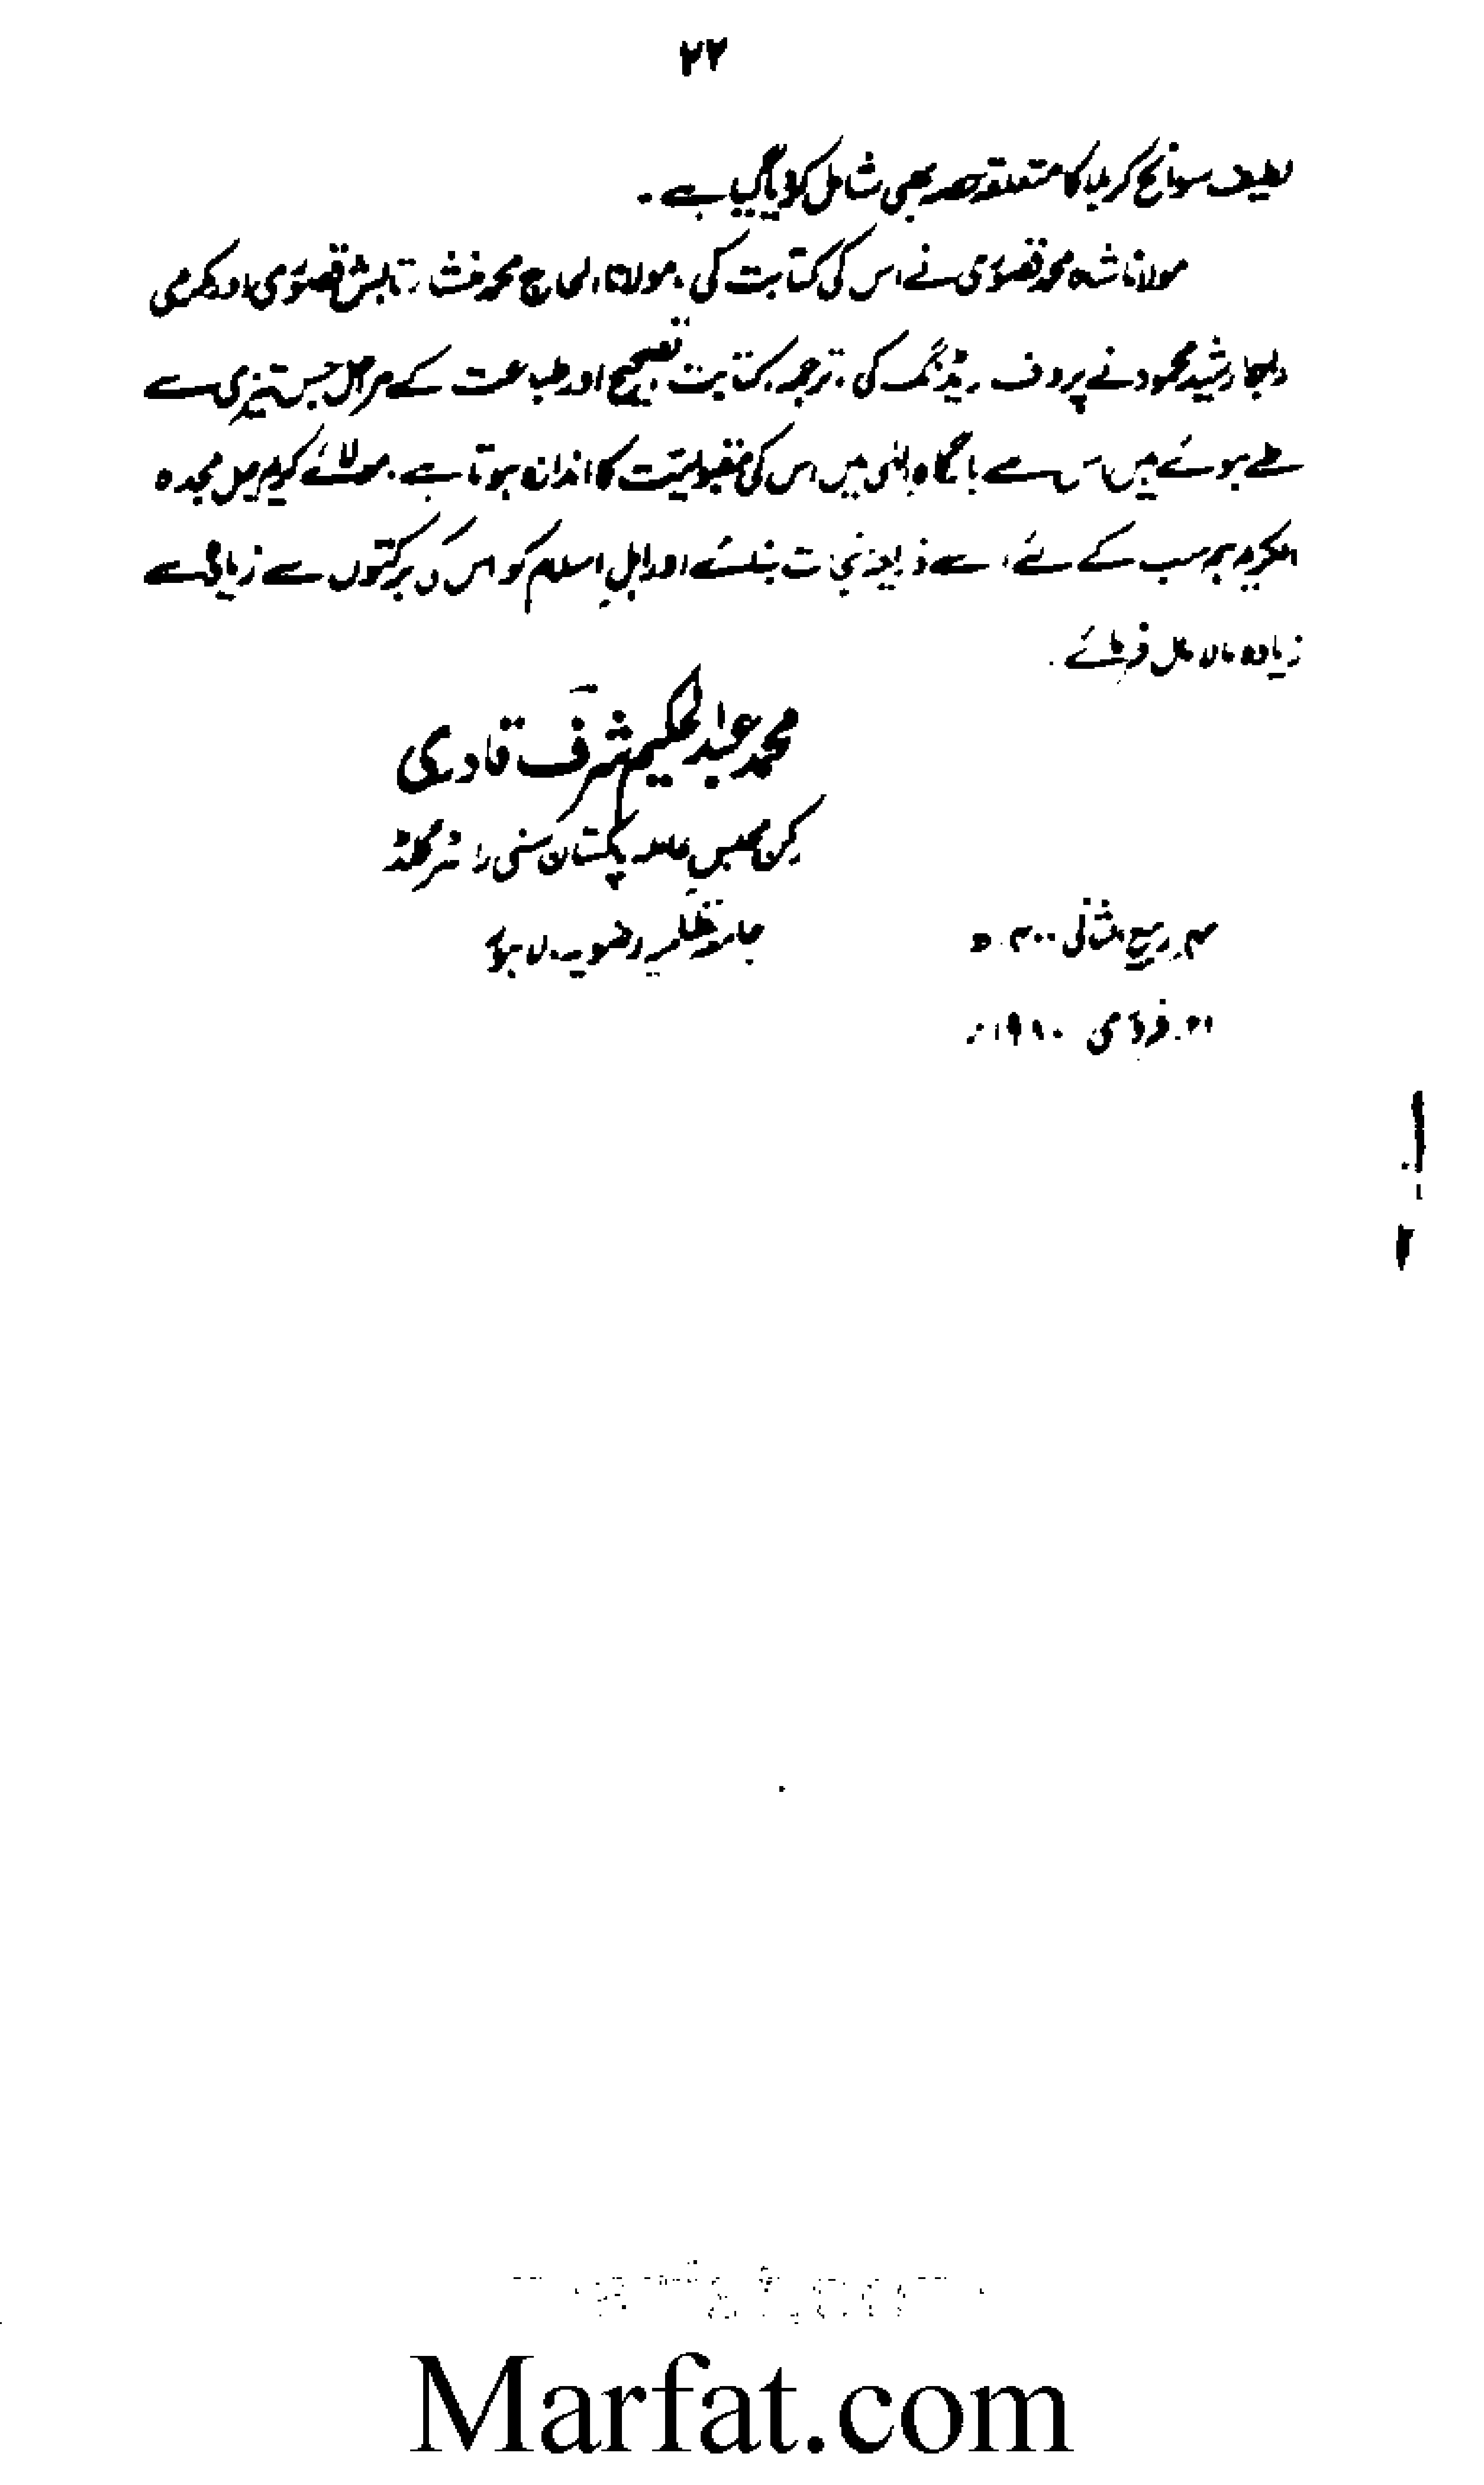 ۲۲
لطیف سوانح کربلا کا متعلقہ حصہ بھی شامل کر دیا گیا ہے۔
مولانا شاہ محمد قصوری نے اس کی کتابت کی، مولانا الحاج محمد منشا تابش قصوری اور مکرمی
راجا رشید محمود نے پروف ریڈنگ کی، ترجمہ، کتابت تصحیح اور طباعت کے مراحل جس تیزی سے
طے ہوئے ہیں اس سے بارگاہ الٰہی میں اس کی مقبولیت کا اندازہ ہوتا ہے۔ مولائے کریم جل مجدہ
الکریم ہم سب کے لئے اسے ذریعہ نجات بنائے اور اہلِ اسلام کو اس کی برکتوں سے زیادہ سے
زیادہ مالا مال فرمائے۔
محمد عبدالحکیم شرف قادری
رکن مجلس عاملہ پاکستان سنی رائٹرز گلڈ
جامعہ نظامیہ رضویہ، لاہور
ربیع الثانی ۱۴۰۰ھ
فروری ۱۹۸۰ء
Marfat.com